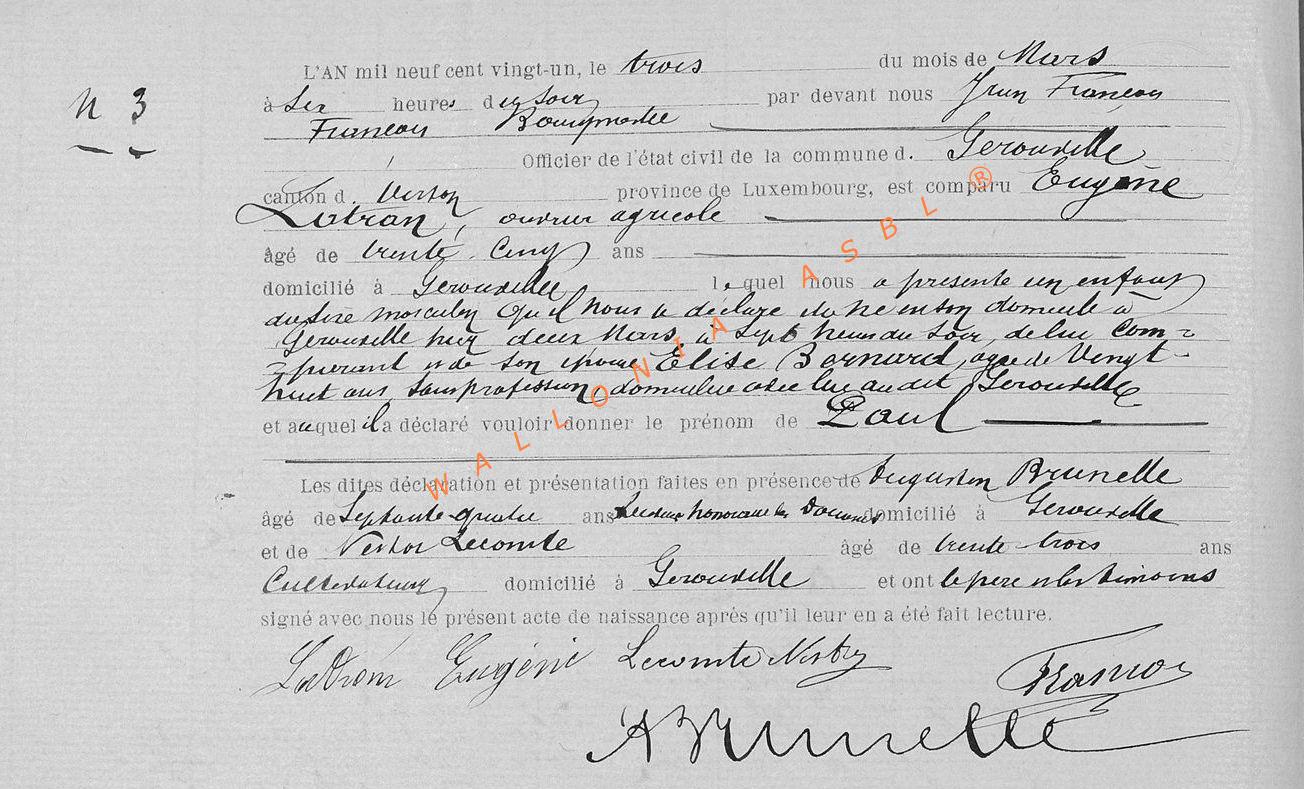 N 3
L'AN mil neuf cent vingt-un, le trois du mois de Mars
à six heures du soir par devant nous Jean François
François Bourgmestre
Officier de l'état civil de la commune d. Gérouville
canton d. Virton province de Luxembourg, est comparu Eugène
Latran, ouvrier agricole
âgé de trente cinq ans
domicilié à Gérouville lequel nous a présenté un enfant
du sexe masculin qu'il nous a déclaré être né en son domicile à
Gérouville hier deux Mars, à sept heures du soir, de lui com=
=parant et de son épouse Elise Bernard, agée de Vingt-
huit ans, sans profession, domiciliée avec lui audit Gérouville
et auquel il a déclaré vouloir donner le prénom de Paul
Les dites déclaration et présentation faites en présence de Augustin Brunelle
âgé de Septante-quatre ans honoraire des Douanes domicilié à Gérouville
et de Nestor Lecomte âgé de trente trois ans
Cultivateur domicilié à Gérouville et ont le père et les témoins
signé avec nous le présent acte de naissance après qu'il leur en a été fait lecture.
Latran Eugène Lecomte Nestor François
A Brunelle
WALLONIA ASBL ®